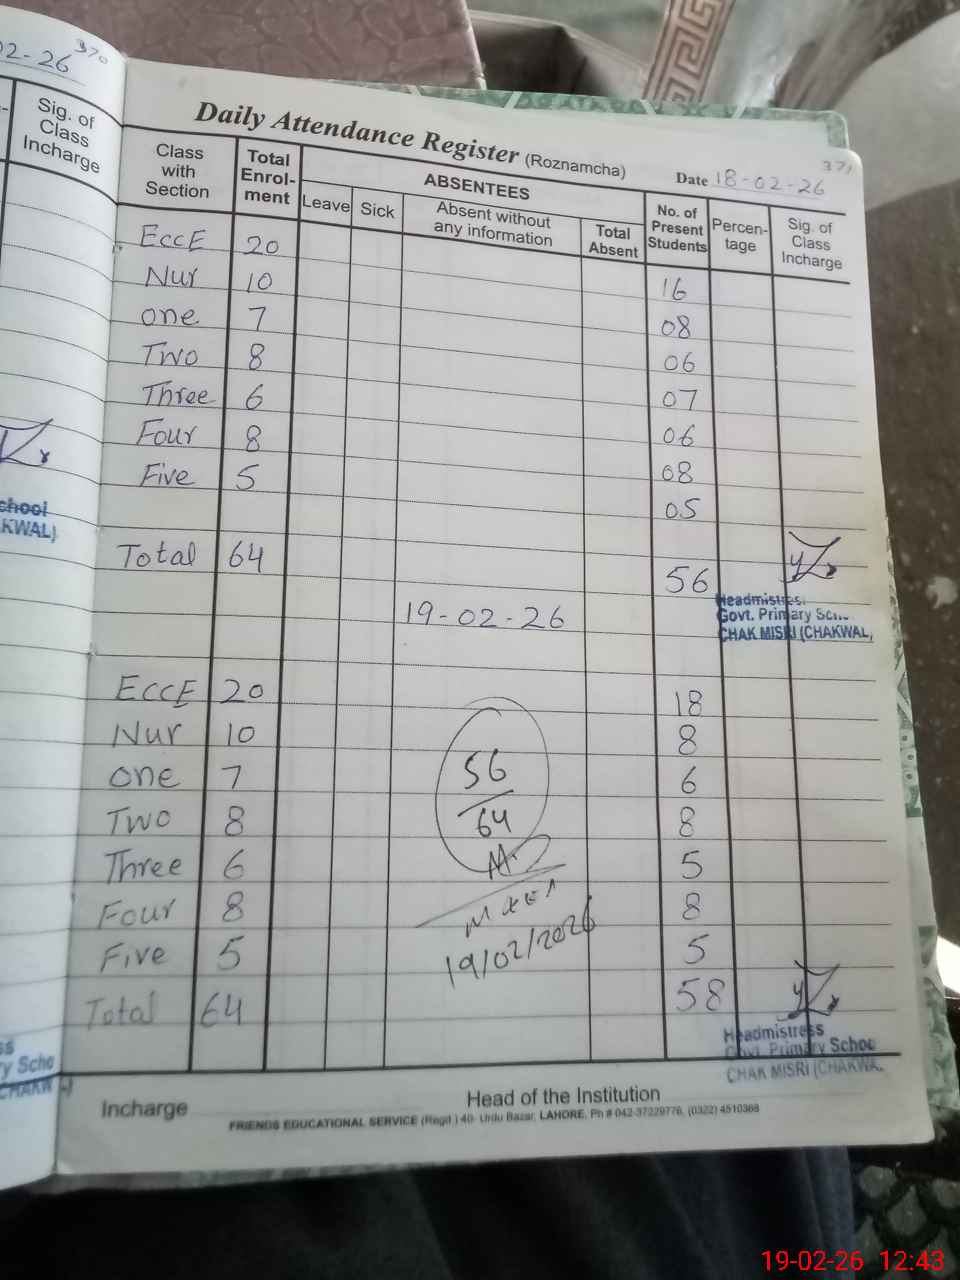 02-26 370
Sig. of Class Incharge
Daily Attendance Register (Roznamcha)
371
Date 18-02-26
Class with Section Total Enrol-ment ABSENTEES No. of Present Students Percen-tage Sig. of Class Incharge
Leave Sick Absent without any information Total Absent
EccE 20 16
Nur 10 08
one 7 06
Two 8 07
Three 6 06
Four 8 08
Five 5 05
Total 64 56
Headmistress
Govt. Primary Sch
CHAK MISRI (CHAKWAL)
19-02-26
EccE 20 18
Nur 10 8
one 7 6
Two 8 8
Three 6 5
Four 8 8
Five 5 5
Total 64 58
56
64
19/02/2026
Headmistress
Govt. Primary Schoo
CHAK MISRI (CHAKWA
chool
KWAL)
ss
ry Scho
CHAKW
Incharge
Head of the Institution
FRIENDS EDUCATIONAL SERVICE (Regd.) 40- Urdu Bazar, LAHORE. Ph # 042-37229776, (0322) 4510368
19-02-26 12:43